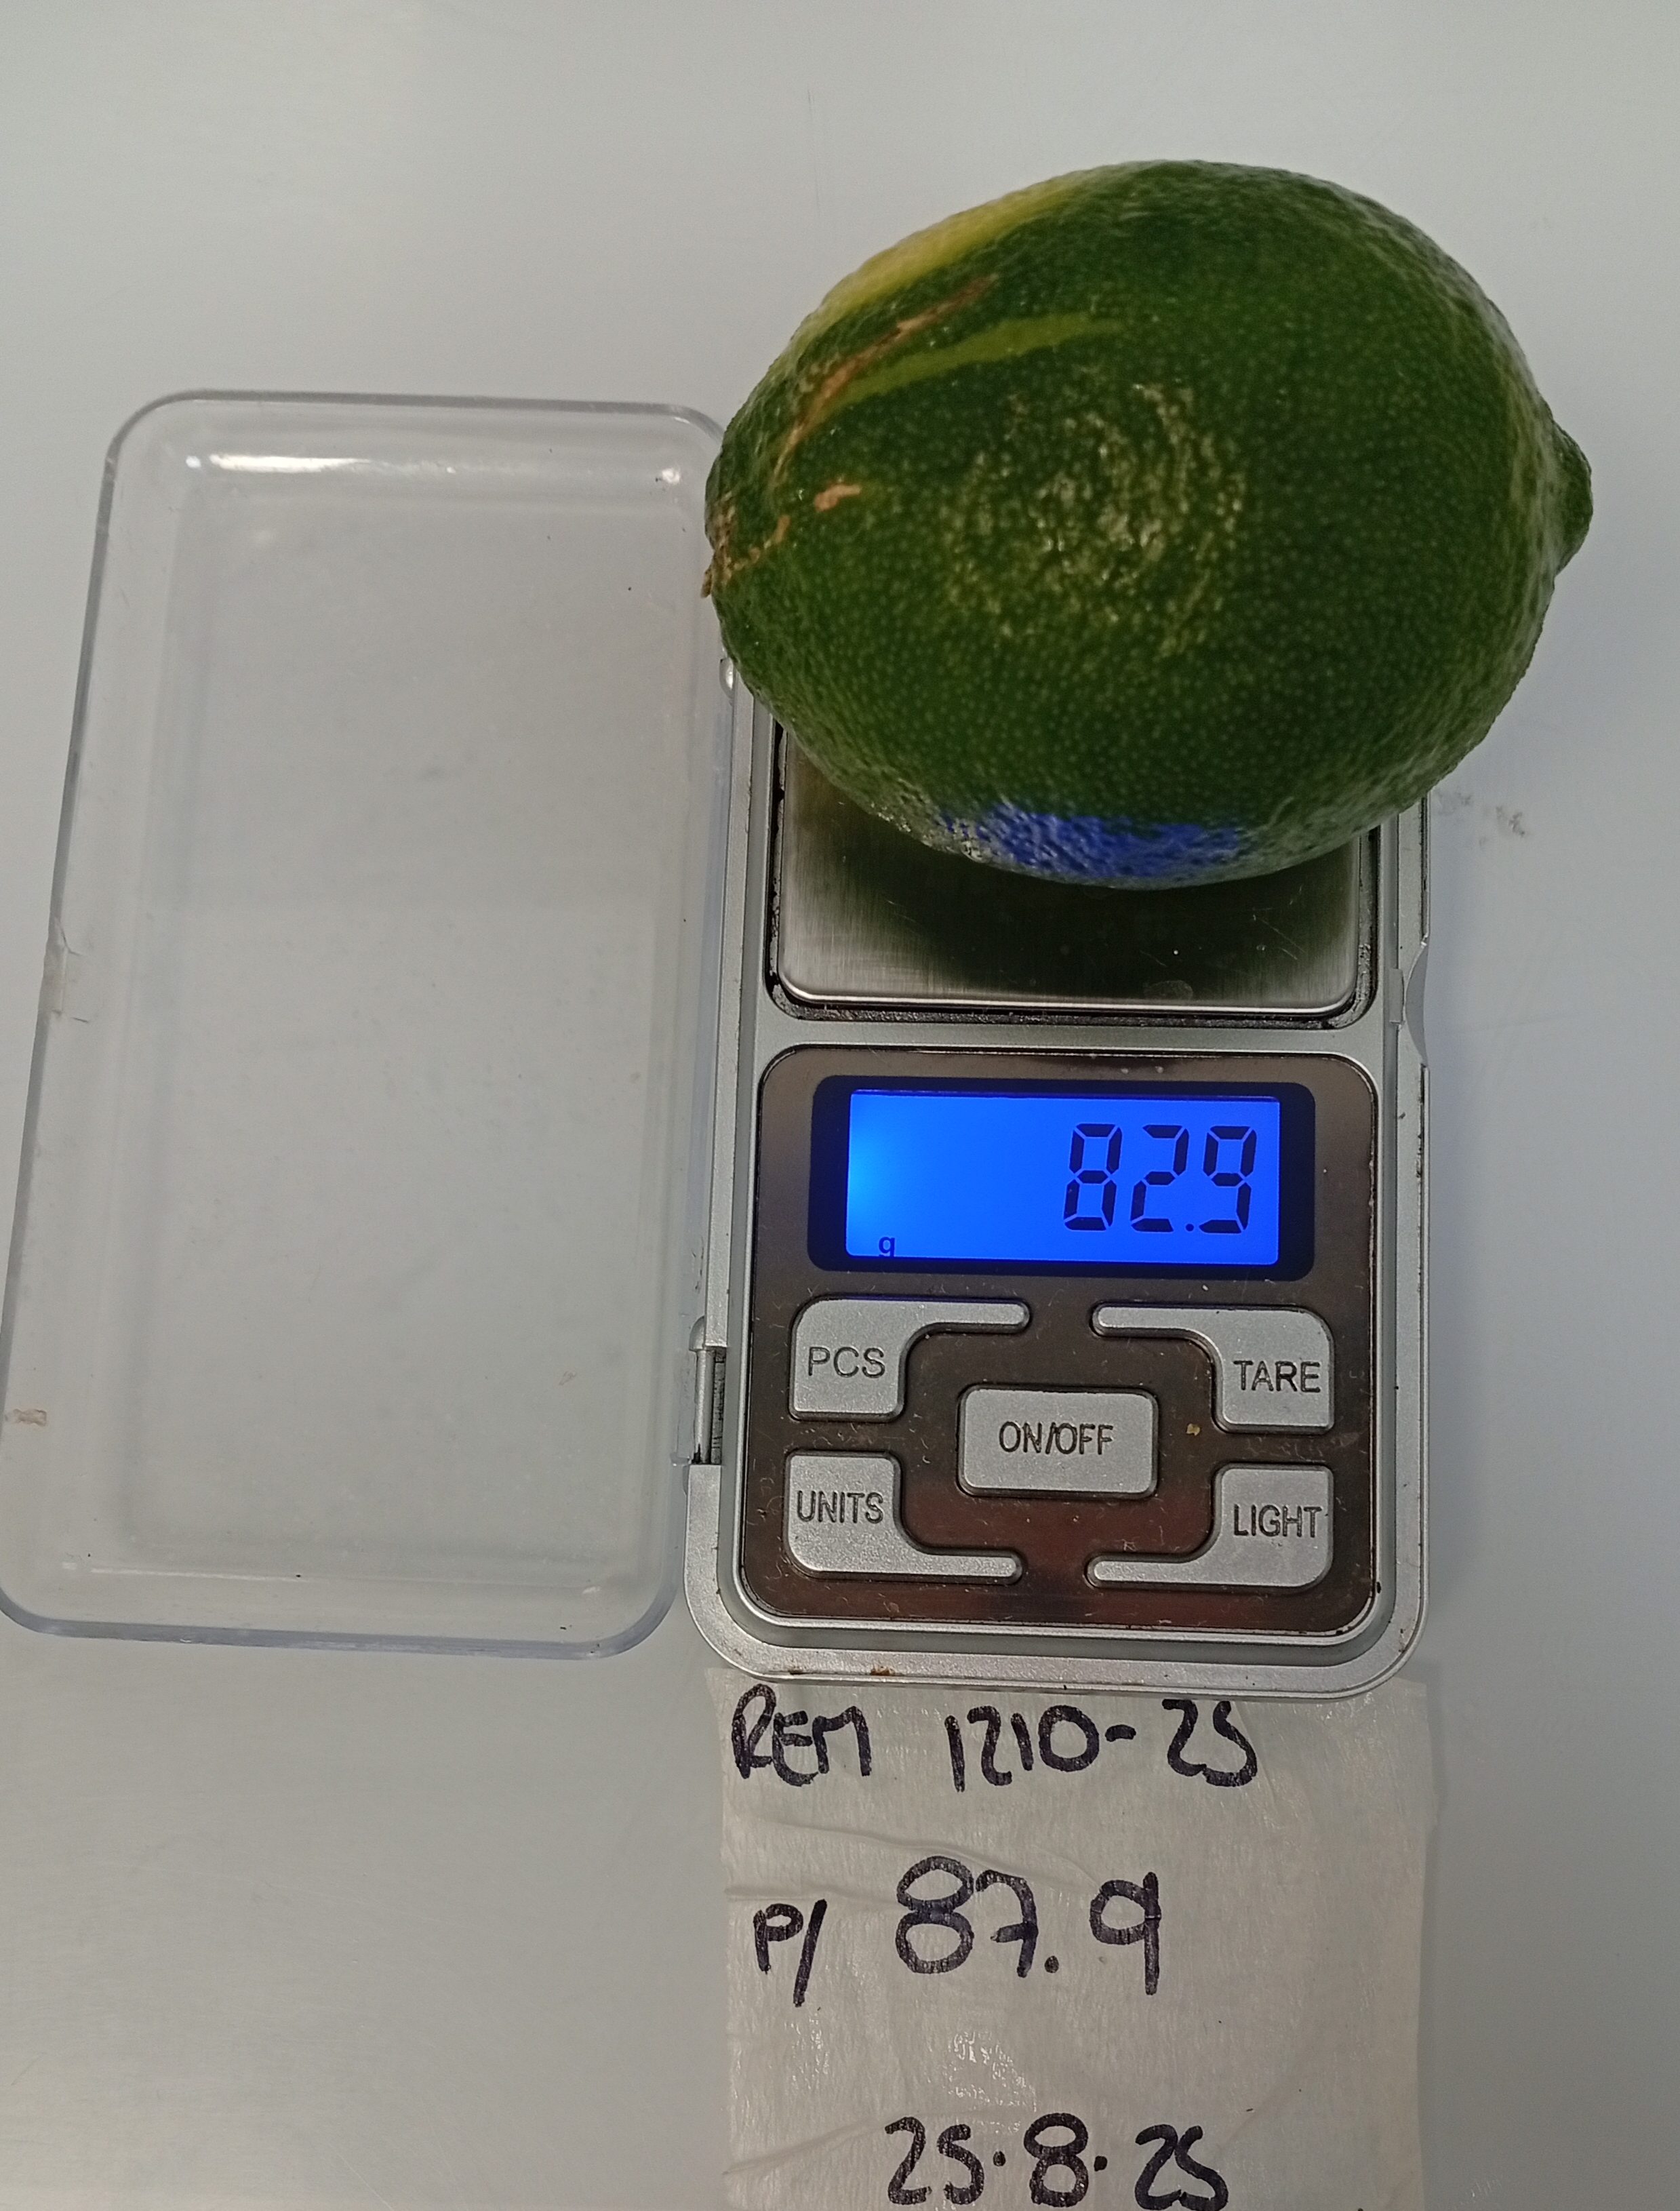 82.9
g
PCS
TARE
ON/OFF
UNITS
LIGHT
REM 1210-25
P/ 87.9
25.8.25